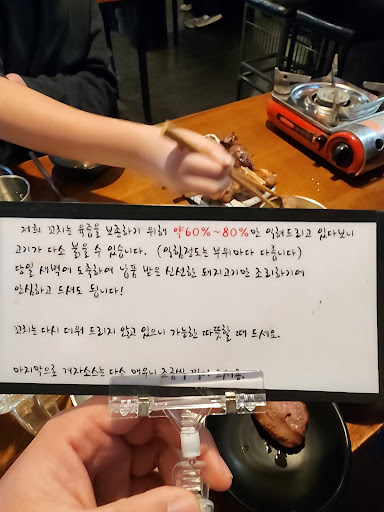 저희 꼬치는 육즙을 보존하기 위해 약60%~80%만 익혀드리고 있다보니
고기가 다소 붉을 수 있습니다. (익힘정도는 부위마다 다릅니다)
당일 새벽에 도축하여 납품 받은 신선한 돼지고기만 조리하기에
안심하고 드셔도 됩니다!
꼬치는 다시 데워 드리지 않고 있으니 가능한 따뜻할 때 드세요.
마지막으로 겨자소스는 다소 매우니 조금씩